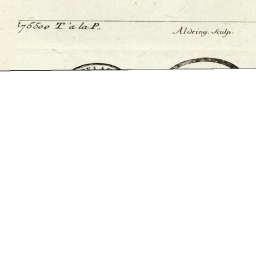 175500 T. a la P.
Aldring. Sculp.